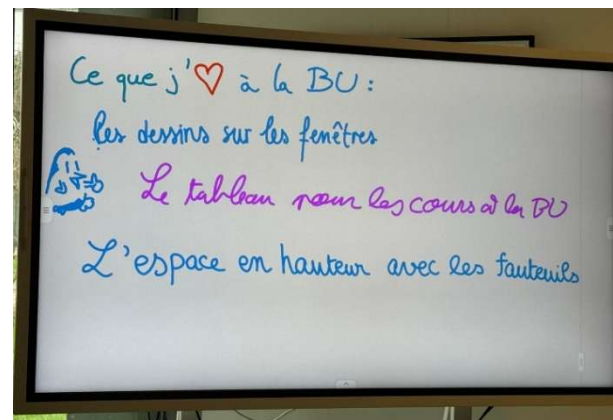 Ce que j'♡ à la BU :
les dessins sur les fenêtres
Le tableau pour les cours à la BU
L'espace en hauteur avec les fauteuils